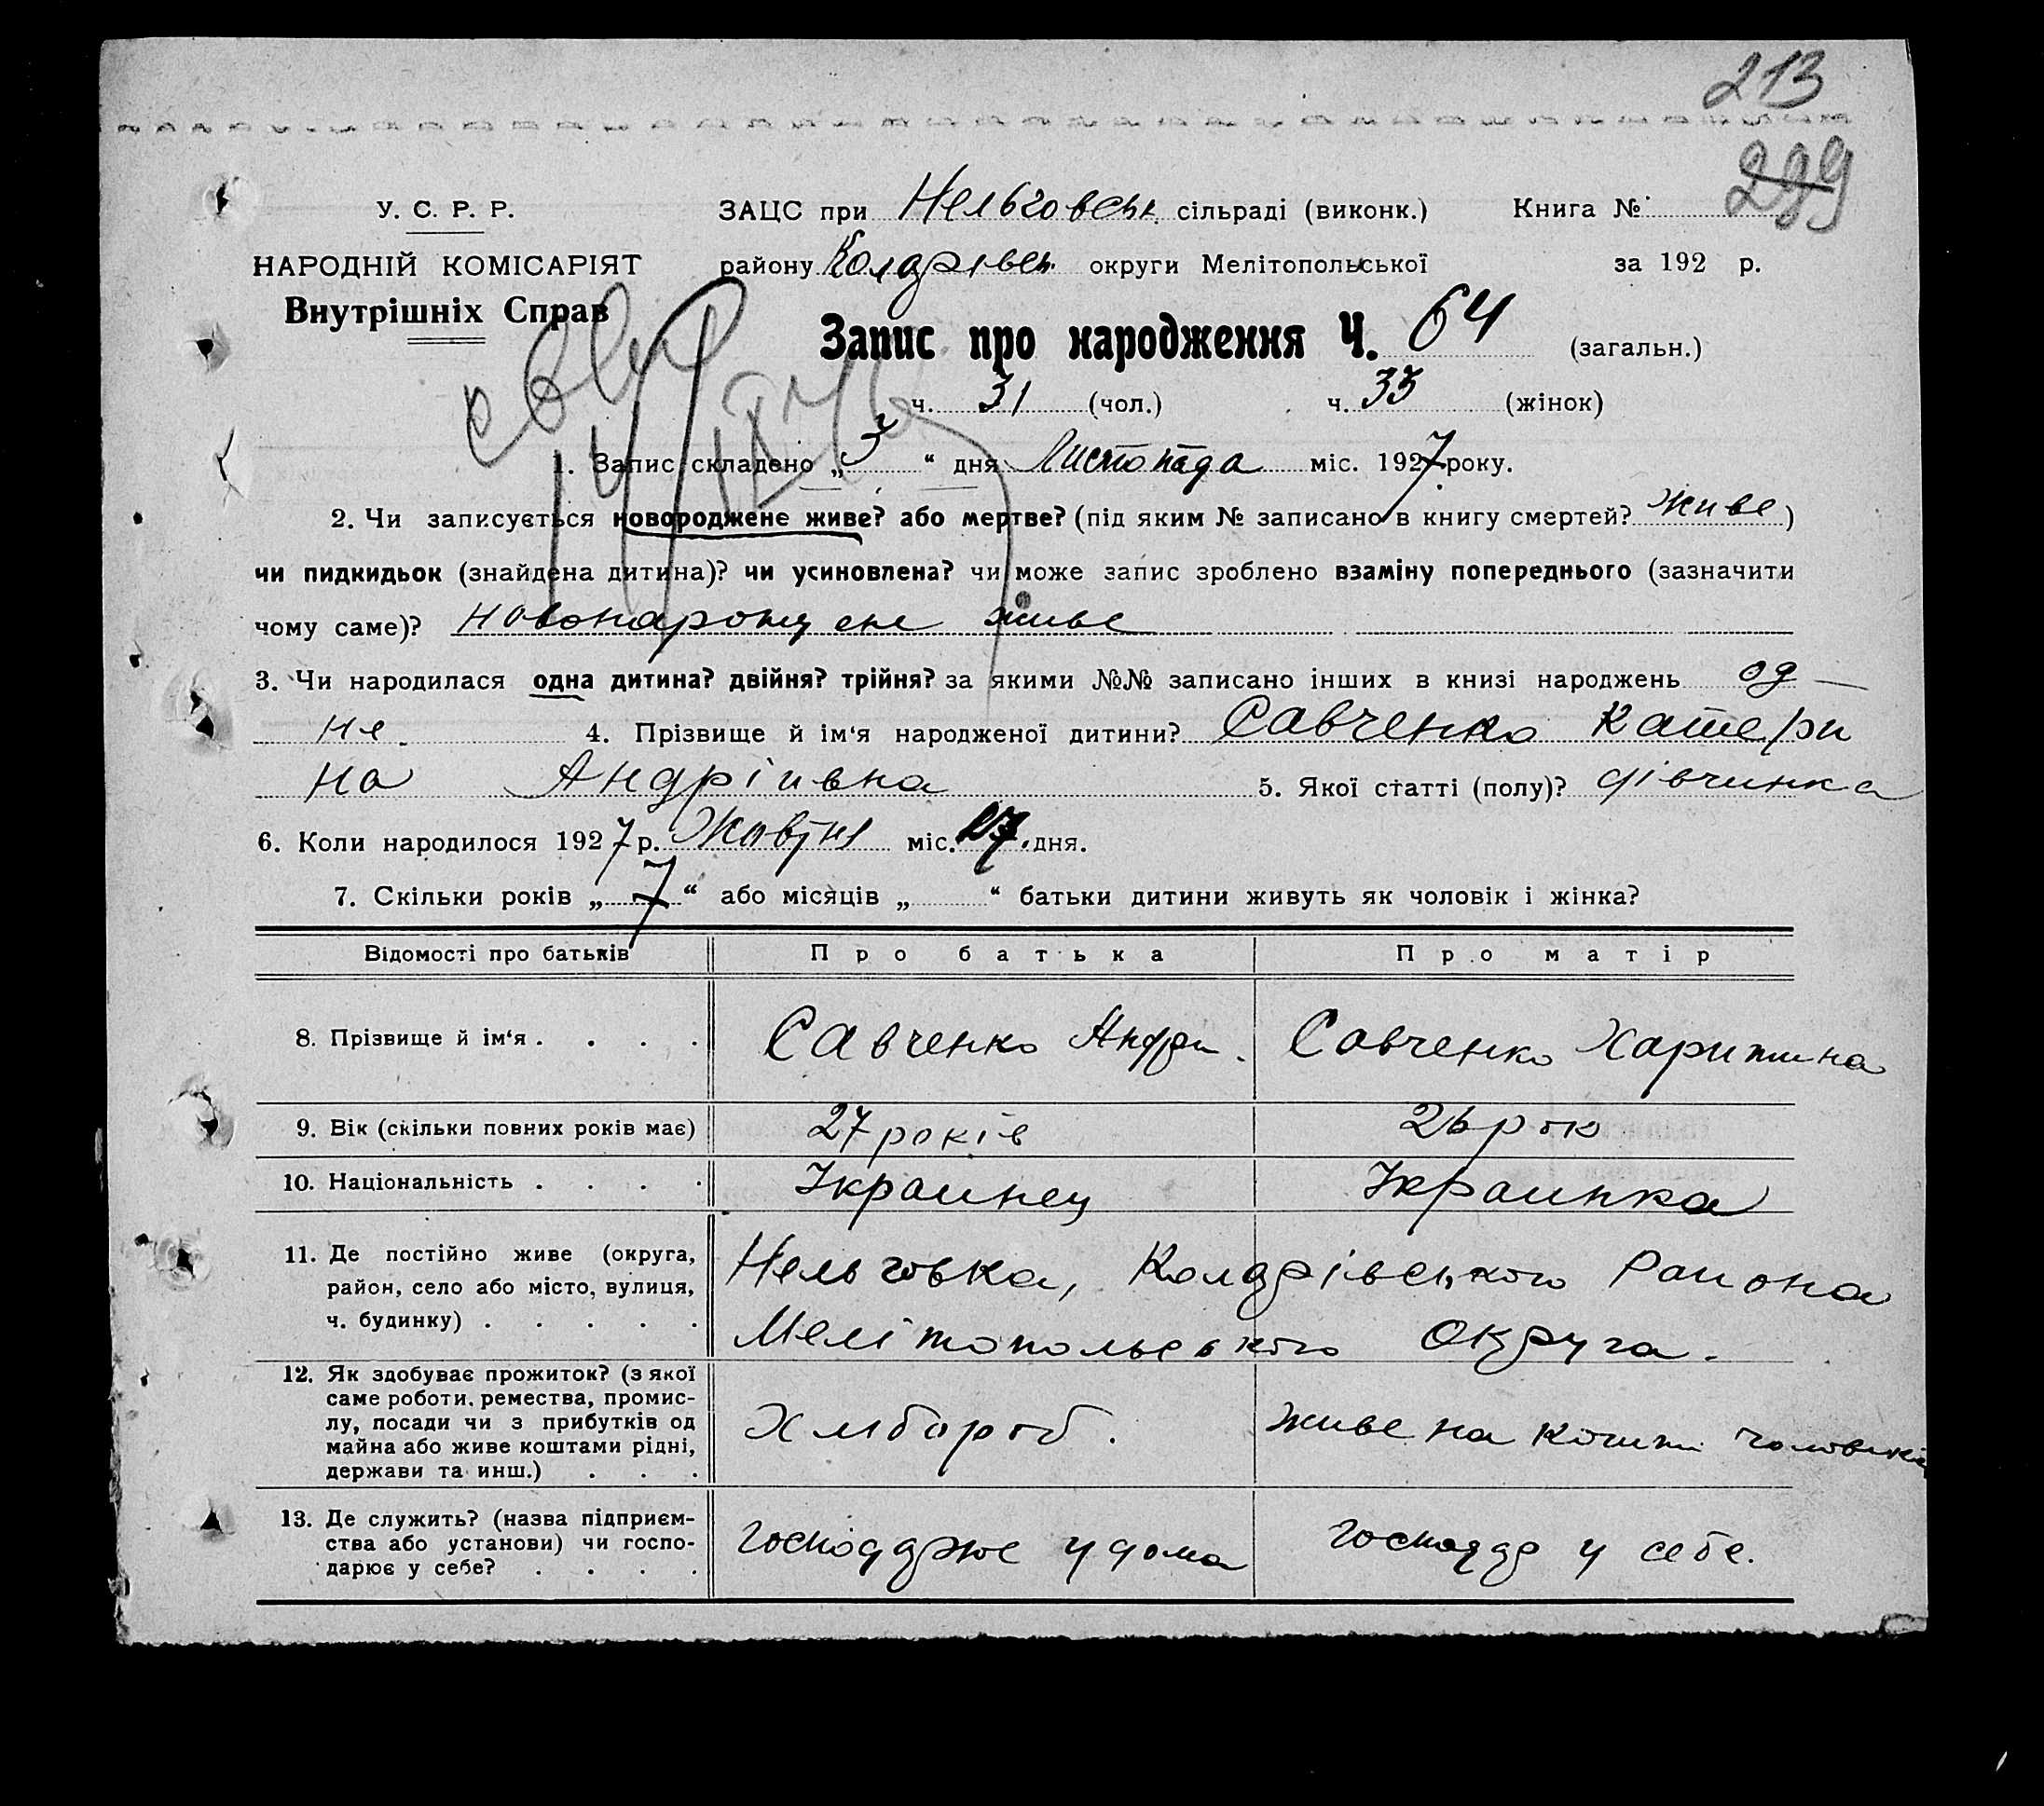 213
299
У. С. Р. Р.
ЗАЦС при Нельговськ. сільраді (виконк.) Книга №
НАРОДНІЙ КОМІСАРІЯТ
району Колдрівсь. округи Мелітопольської за 192 р.
Внутрішніх Справ
Запис про народження Ч. 64 (загальн.)
ч. 31 (чол.) ч. 33 (жінок)
1. Запис складено „3“ дня Листопада міс. 1927 року.
2. Чи записується новороджене живе? або мертве? (під яким № записано в книгу смертей? живе)
чи пидкидьок (знайдена дитина)? чи усиновлена? чи може запис зроблено взаміну попереднього (зазначити
чому саме)? живе
3. Чи народилася одна дитина? двійня? трійня? за якими №№ записано інших в книзі народжень од —
не. 4. Прізвище й ім'я народженої дитини? Савченко Катери
на Андріивна 5. Якої статті (полу)? дівчинка
6. Коли народилося 1927 р. міс. дня.
7. Скільки років „7“ або місяців „ “ батьки дитини живуть як чоловік і жінка?
Відомості про батьків Про батька Про матір
8. Прізвище й ім'я . . . . Савченко Андри. Савченко Харитина
9. Вік (скільки повних років має) 27 років 26 рок
10. Національність . . . . Украинец Украинка
11. Де постійно живе (округа,
район, село або місто, вулиця,
ч. будинку) . . . . .
Нельговка, Колдрівського Района
Мелітопольського Округа.
12. Як здобуває прожиток? (з якої
саме роботи, ремества, промис-
лу, посади чи з прибутків од
майна або живе коштами рідні,
держави та инш.) . . .
Хлібороб. живе на кошти чоловика
13. Де служить? (назва підприєм-
ства або установи) чи госпо-
дарює у себе? . . . .
у дома у себе.